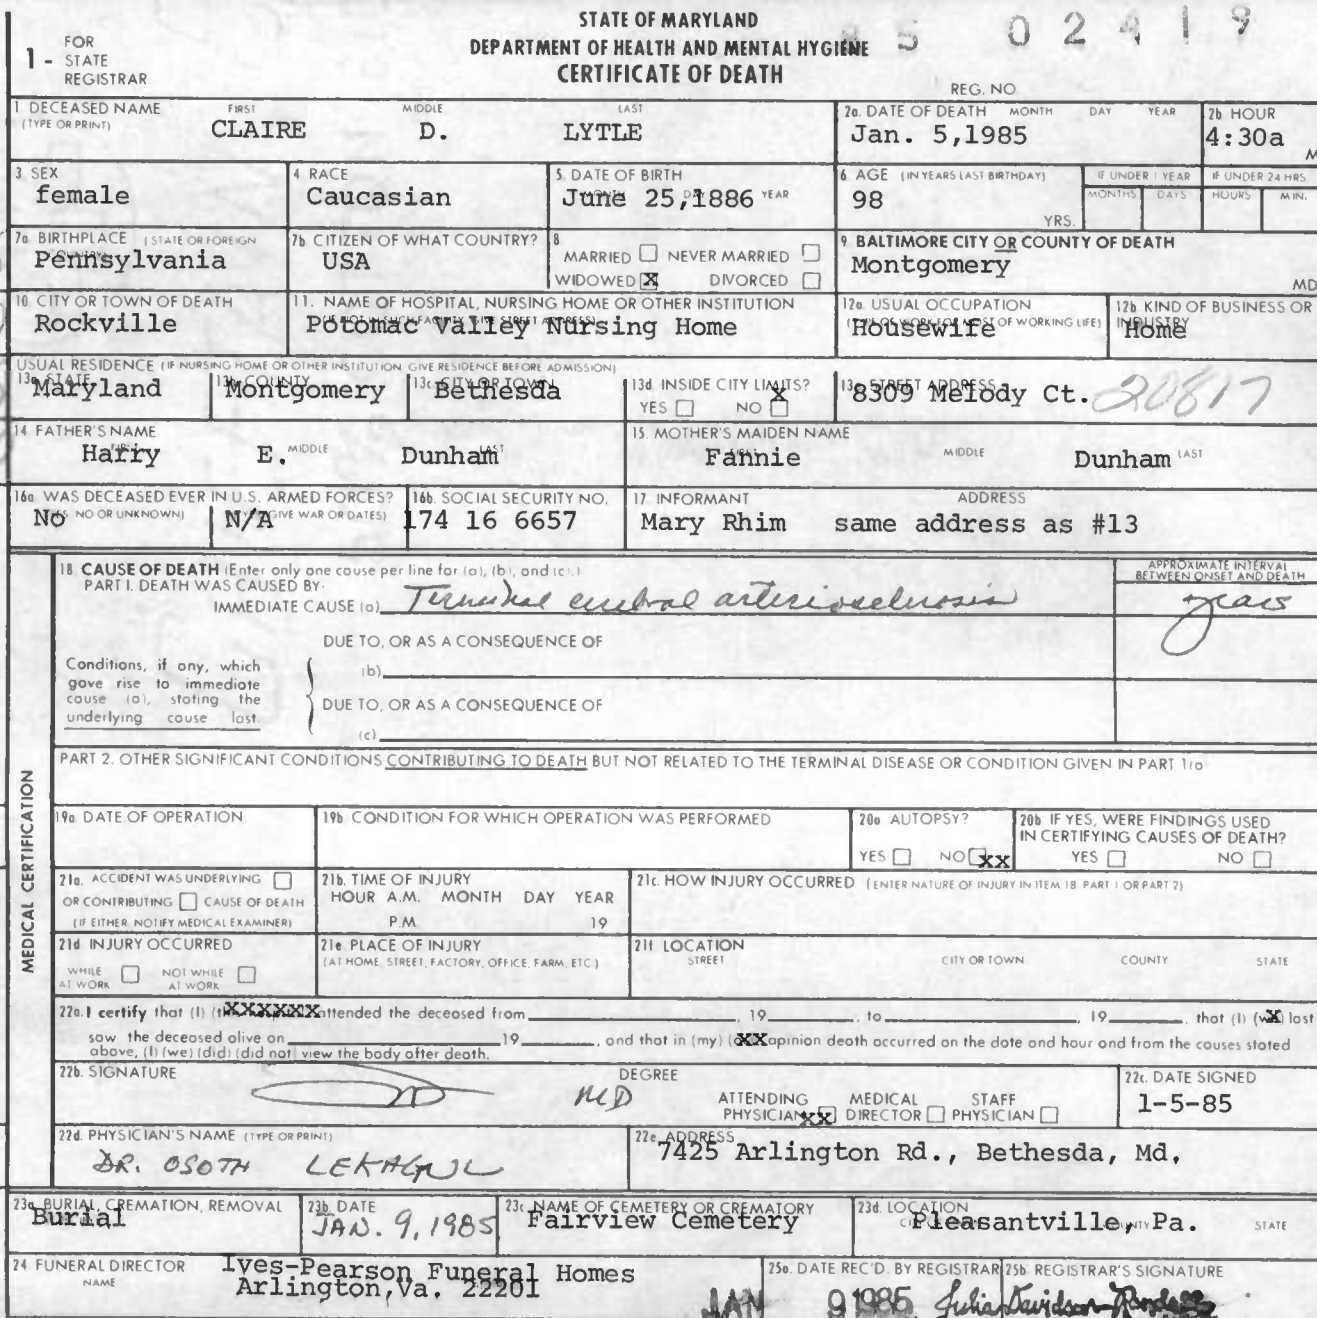 STATE OF MARYLAND
DEPARTMENT OF HEALTH AND MENTAL HYGIENE
CERTIFICATE OF DEATH
5 02419
1 - FOR STATE REGISTRAR
REG. NO.
1 DECEASED NAME (TYPE OR PRINT) FIRST MIDDLE LAST
CLAIRE D. LYTLE
2a. DATE OF DEATH MONTH DAY YEAR
Jan. 5,1985
2b HOUR
4:30a M
3 SEX
female
4 RACE
Caucasian
5 DATE OF BIRTH
June 25,1886 YEAR
6 AGE (IN YEARS LAST BIRTHDAY)
98 YRS.
IF UNDER 1 YEAR MONTHS DAYS
IF UNDER 24 HRS HOURS MIN.
7a BIRTHPLACE (STATE OR FOREIGN COUNTRY)
Pennsylvania
7b CITIZEN OF WHAT COUNTRY?
USA
8 MARRIED NEVER MARRIED
WIDOWED X DIVORCED
9 BALTIMORE CITY OR COUNTY OF DEATH
Montgomery MD
10 CITY OR TOWN OF DEATH
Rockville
11. NAME OF HOSPITAL, NURSING HOME OR OTHER INSTITUTION
(IF NOT IN SUCH FACILITY, GIVE STREET ADDRESS)
Potomac Valley Nursing Home
12a. USUAL OCCUPATION
(TYPE OF WORK FOR MOST OF WORKING LIFE)
Housewife
12b KIND OF BUSINESS OR INDUSTRY
Home
USUAL RESIDENCE (IF NURSING HOME OR OTHER INSTITUTION GIVE RESIDENCE BEFORE ADMISSION)
13a STATE
Maryland
13b COUNTY
Montgomery
13c CITY OR TOWN
Bethesda
13d INSIDE CITY LIMITS?
YES NO X
13e STREET ADDRESS
8309 Melody Ct. 20817
14 FATHER'S NAME FIRST MIDDLE LAST
Harry E. Dunham
15. MOTHER'S MAIDEN NAME MIDDLE LAST
Fannie Dunham
16a WAS DECEASED EVER IN U.S. ARMED FORCES?
(YES NO OR UNKNOWN) (IF YES GIVE WAR OR DATES)
No N/A
16b. SOCIAL SECURITY NO.
174 16 6657
17 INFORMANT ADDRESS
Mary Rhim same address as #13
MEDICAL CERTIFICATION
18 CAUSE OF DEATH (Enter only one cause per line for (a), (b), and (c).)
PART I. DEATH WAS CAUSED BY:
IMMEDIATE CAUSE (a) Terminal cerebral arteriosclerosis
APPROXIMATE INTERVAL BETWEEN ONSET AND DEATH
years
DUE TO, OR AS A CONSEQUENCE OF
(b)
DUE TO, OR AS A CONSEQUENCE OF
(c)
Conditions, if any, which
gove rise to immediate
cause (a), stating the
underlying cause last.
PART 2. OTHER SIGNIFICANT CONDITIONS CONTRIBUTING TO DEATH BUT NOT RELATED TO THE TERMINAL DISEASE OR CONDITION GIVEN IN PART 1(a
19a DATE OF OPERATION
19b CONDITION FOR WHICH OPERATION WAS PERFORMED
20a AUTOPSY?
YES NO XX
20b IF YES, WERE FINDINGS USED
IN CERTIFYING CAUSES OF DEATH?
YES NO
21a. ACCIDENT WAS UNDERLYING
OR CONTRIBUTING CAUSE OF DEATH
(IF EITHER NOTIFY MEDICAL EXAMINER)
21b. TIME OF INJURY
HOUR A.M. MONTH DAY YEAR
P.M. 19
21c. HOW INJURY OCCURRED (ENTER NATURE OF INJURY IN ITEM 18 PART 1 OR PART 2)
21d INJURY OCCURRED
WHILE AT WORK NOT WHILE AT WORK
21e PLACE OF INJURY
(AT HOME, STREET, FACTORY, OFFICE, FARM, ETC.)
21f LOCATION
STREET CITY OR TOWN COUNTY STATE
22a. I certify that (I) (XXXXXX attended the deceased from 19 , to , 19 , that (I) (wX) last
saw the deceased alive on 19 , and that in (my) (XX opinion death occurred on the date and hour and from the causes stated
above, (I) (we) (did) (did not) view the body after death.
22b. SIGNATURE DEGREE
MD
ATTENDING PHYSICIAN XX MEDICAL DIRECTOR STAFF PHYSICIAN
22c. DATE SIGNED
1-5-85
22d. PHYSICIAN'S NAME (TYPE OR PRINT)
DR. OSOTH LEKAGUL
22e ADDRESS
7425 Arlington Rd., Bethesda, Md.
23a BURIAL, CREMATION, REMOVAL
Burial
23b. DATE
JAN. 9, 1985
23c NAME OF CEMETERY OR CREMATORY
Fairview Cemetery
23d. LOCATION STATE
Pleasantville, Pa.
24 FUNERAL DIRECTOR
NAME
Ives-Pearson Funeral Homes
Arlington,Va. 22201
25a. DATE REC'D. BY REGISTRAR
JAN 9 1985
25b. REGISTRAR'S SIGNATURE
Julia Davidson-Randall